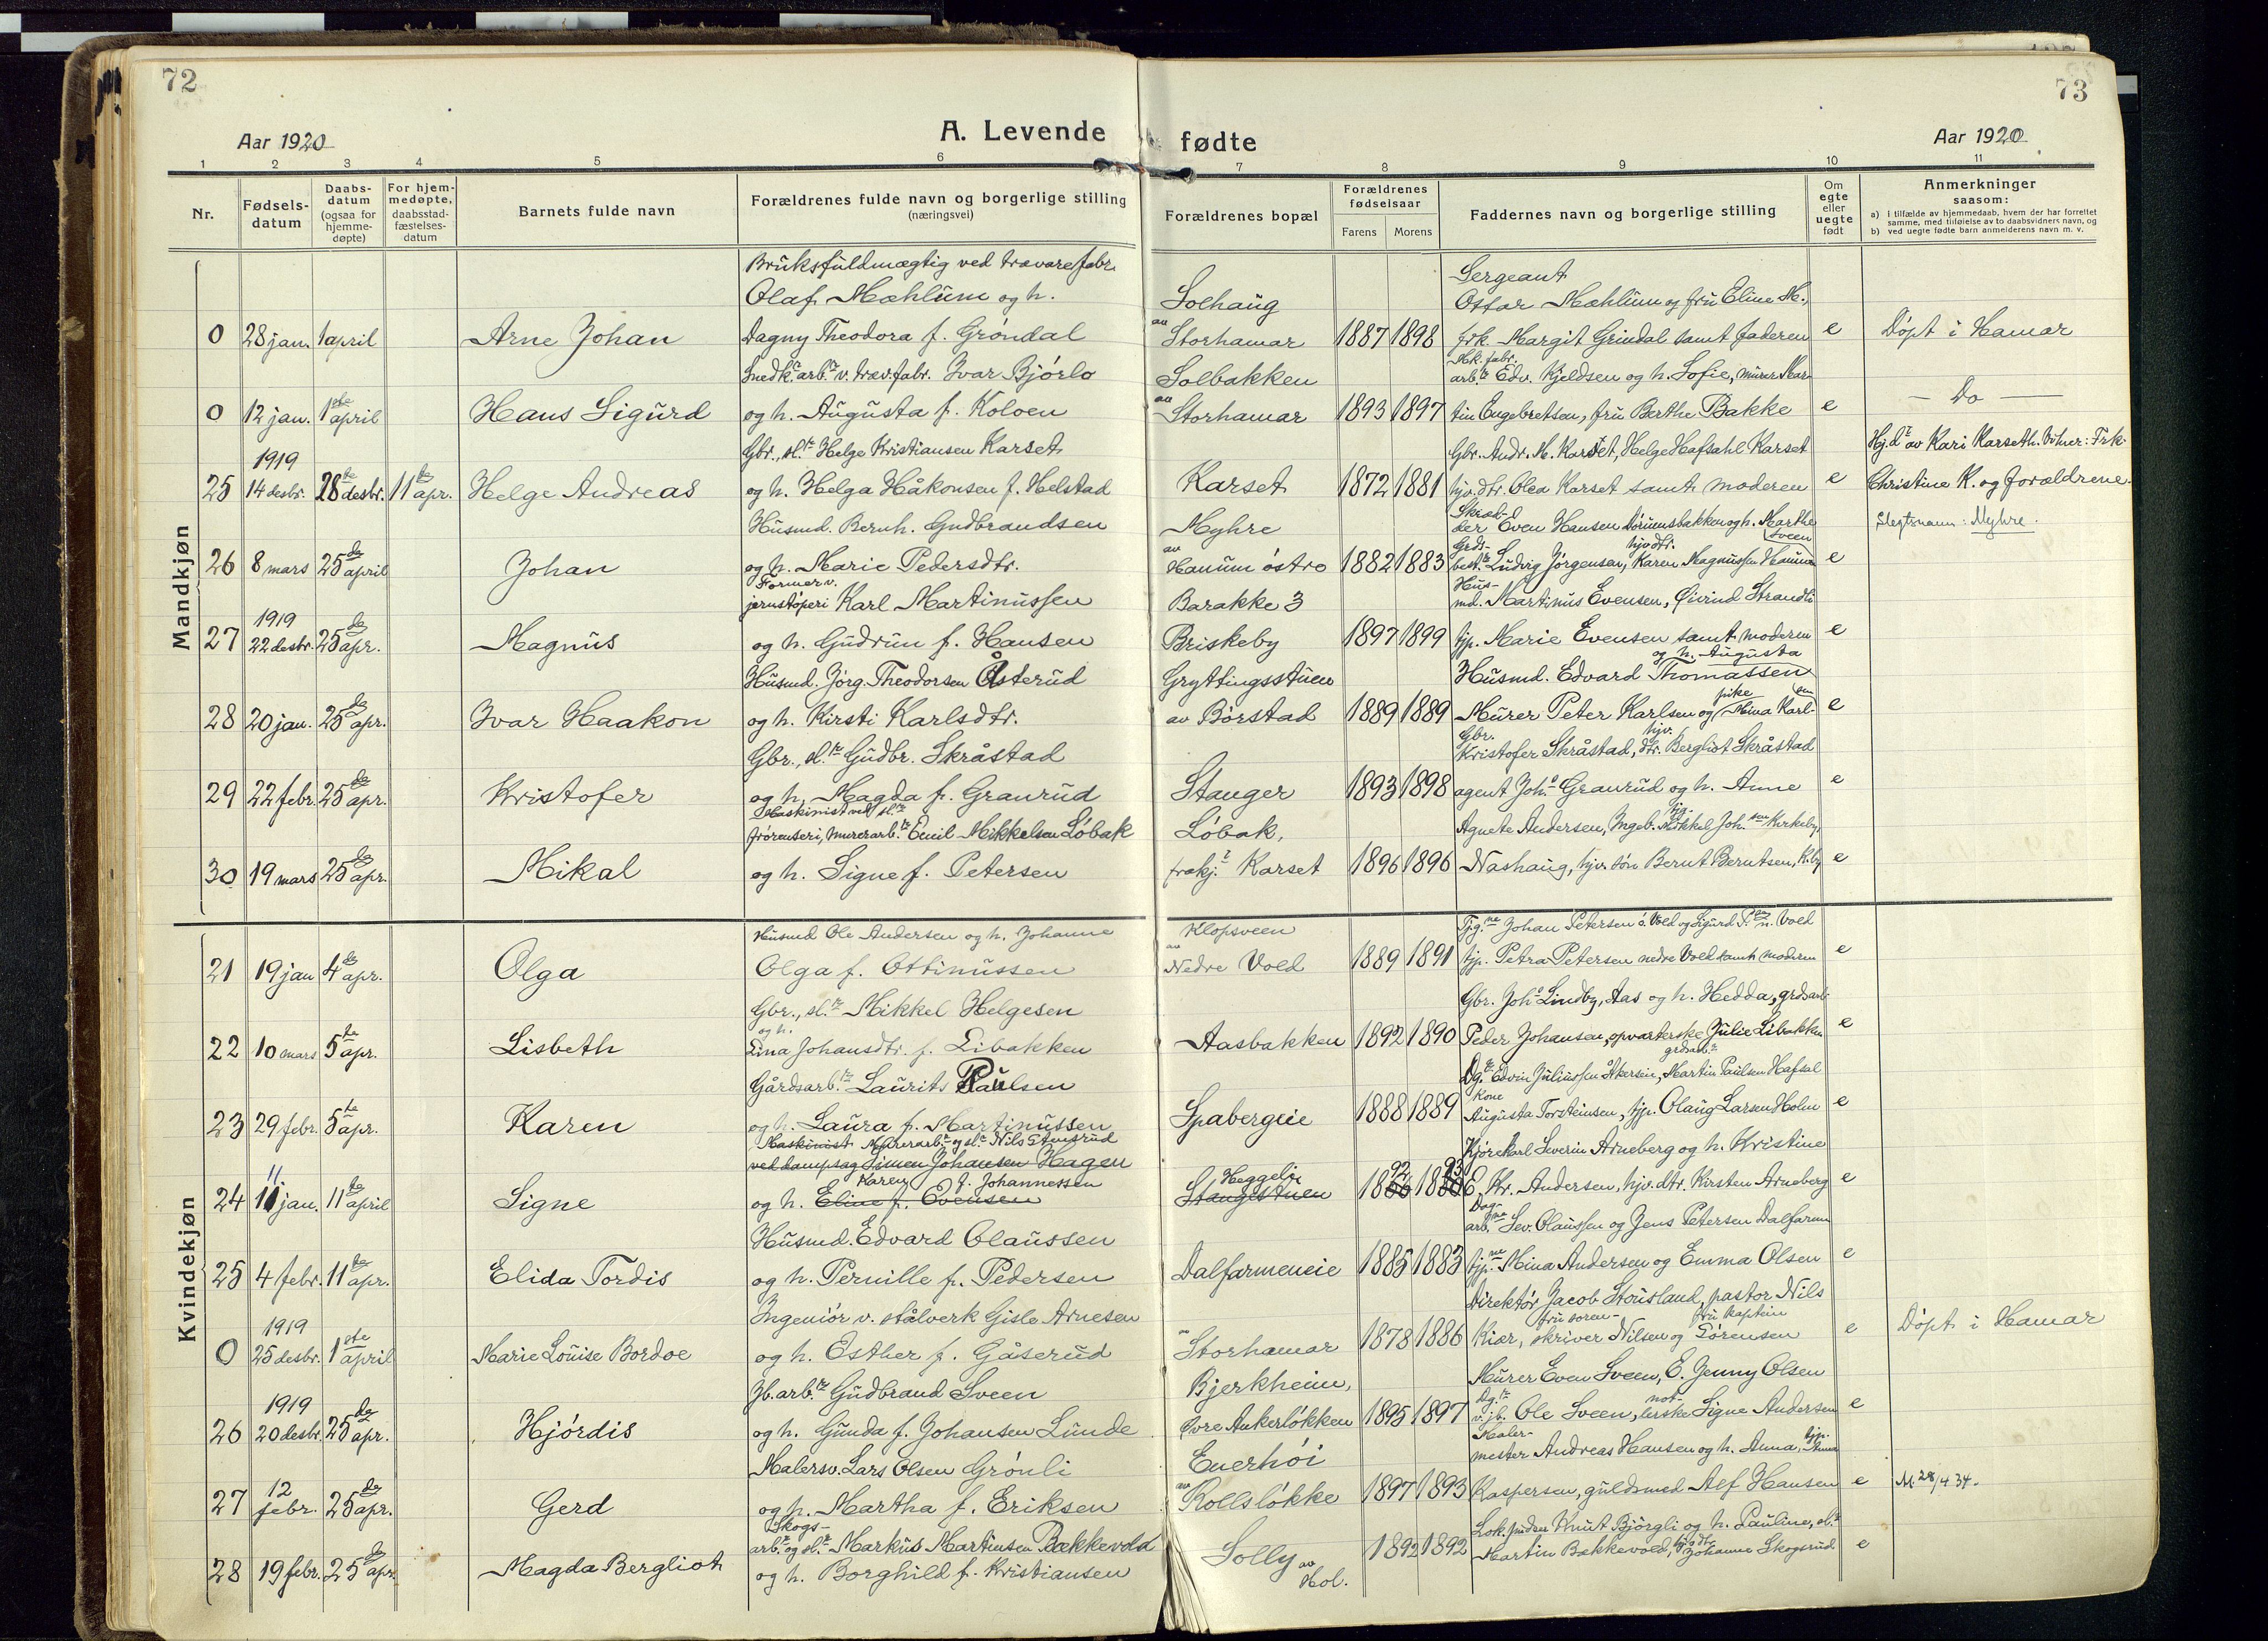 72
73
Aar 1920
A. Levende
fødte
Aar 1920
1 2 3 4 5 6 7 8 9 10 11
Nr.
Fødsels-
datum
Daabs-
datum
(ogsaa for
hjemme-
døpte)
For hjem-
medøpte,
daabsstad-
fæstelses-
datum
Barnets fulde navn
Forældrenes fulde navn og borgerlige stilling
(næringsvei)
Forældrenes bopæl
Forældrenes
fødselsaar
Farens Morens
Faddernes navn og borgerlige stilling
Om
egte
eller
uegte
født
Anmerkninger
saasom:
a) i tilfælde av hjemmedaab, hvem der har forrettet
samme, med tilføielse av to daabsvidners navn, og
b) ved uegte fødte barn anmelderens navn m. v.
Mandkjøn
Bruksfuldmægtig ved trævarefabr.
Olaf Mæhlum og h. Solhaug Sergeant
Ottar Mæhlum og fru Eline M.,
0 28 jan. 1 april Arne Johan Dagny Theodora f. Gröndal av Storhamar 1887 1898 frk. Margit Grindal samt faderen e Döpt i Hamar
Snedk. arb. v. træv.fabr. Ivar Bjørlo Solbakken arb. Edv. Kjeldsen og h. Sofie, murer Mar-
0 12 jan. 1ste april Hans Sigurd og h. Augusta f. Koloen av Storhamar 1893 1897 tin Engebretsen, fru Berthe Bakke e — Do —
1919 Gbr., sl. Helge Kristiansen Karset Gbr. Andr. M. Karset, Helge Hafsahl Karset Hj.d. av Kari Karseth. Vitner: Frk.
25 14 desbr. 28de desbr. 11te apr. Helge Andreas og h. Helga Håkonsen f. Helstad Karset 1872 1881 hjv. dtr. Olea Karset samt moderen e Christine K. og forældrene.
Husmd. Bernh. Gudbrandsen Myhre Even Hansen og h. Marthe Sveen Slegtsnavn: Myhre.
26 8 mars 25de april Johan og h. Marie Pedersdtr. av Hanum östro 1882 1883 Grdsbest. Ludvig Jörgensen, hjv dtr. Karen Magnussen Hanum e
1919 Former v. jernstöperi Karl Martinussen Barakke 3 Husmd. Martinus Evensen, Öivind Strandli
27 22 desbr. 25de apr. Magnus og h. Gudrun f. Hansen Briskeby 1897 1899 tjp. Marie Evensen samt moderen e
Husmd. Jörg. Theodorsen Åsterud Gryttingsstuen Husmd. Edvard Thomassen og h. Augusta
28 20 jan. 25de apr. Ivar Haakon og h. Kirsti Karlsdtr. av Börstad 1889 1889 Murer Peter Karlsen og pike Mina Karlsen e
Gbr., sl. Gudbr. Skråstad Gbr. Kristofer Skråstad, hjv. dtr. Bergliot Skråstad
29 22 febr. 25de apr. Kristofer og h. Magda f. Granrud Stanger 1893 1898 agent Joh. Granrud og h. Anne e
Maskinist ved sl. frörenseri, murerarb. Emil Mikkelsen Löbak Löbak, Agnete Andersen, Ingeb. Mikkel Joh.sen Kirkeby,
30 19 mars 25de apr. Mikal og h. Signe f. Petersen frakj. Karset 1896 1896 Nashaug, hjv. sön Bernt Berntsen, K.by e
Kvindekjøn
Husmd Ole Andersen og h. Johanne Klopsveen Tjg. Johan Petersen ö. Vold og Sigurd P. n. Vold
21 19 jan 4de apr. Olga Olga f. Ottinussen av Nedre Vold 1889 1891 tjp. Petra Petersen nedre Vold samt moderen e
Gbr., sl. Mikkel Helgesen Gbr. Joh. Lindby, Aas og h. Hedda, grdsarb.
22 10 mars 5te apr. Lisbeth og h. Lina Johansdtr. f. Libakken Aasbakken 1892 1890 Peder Johansen, opvarterske Julie Libakken e
Gårdsarb. Laurits Paulsen Dg. Edvin Juliussen Åkersvein, grdsarb. Martin Paulsen Hafsal
23 29 febr. 5te apr. Karen og h. Laura f. Martinussen Spabergeie 1888 1889 Kone Augusta Torsteinsen, tjp. Olaug Larsen Holm e
Maskinist Murerarb. og sl. Nils Stensrud
ved dampsag Simen Johansen Hagen Heggeli Kjörekarl Severin Arneberg og h. Kristine
24 11 jan. 11te april Signe og h. Karen f. Johannessen Eline f. Evensen Stangestuen 1892 1893 E. Kr. Andersen, hjv. dtr. Kirsten Arneberg e
Husmd. Edvard Olaussen Dagarb. Sev. Olaussen og Jens Petersen Dalfarm
25 4 febr. 11te apr. Elida Tordis og h. Pernille f. Pedersen Dalfarmeneie 1885 1883 tjp. Mina Andersen og Emma Olsen e
1919 Ingeniör v. stålverk Gisle Arnesen Direktör Jacob Stousland, pastor Nils
0 25 desbr. 1ste april Marie Louise Bordoe og h. Esther f. Gåserud Storhamar 1878 1886 Kiær, fru sorenskriver Nilsen og fru kaptein Sörensen e Döpt i Hamar
1919 Jb. arb. Gudbrand Sveen Bjerkheim, Murer Even Sveen, E. Jenny Olsen
26 20 desbr. 25de apr. Hjördis og h. Gunda f. Johansen Lunde Övre Ankerlökken 1895 1897 Dg. v. jb. Ole Sveen, Signe Andersen e
12 Malersv. Lars Olsen Grönli Enerhöi Malermester Andreas Hansen og h. Anna, tjp.
27 febr. 25de apr. Gerd og h. Martha f. Eriksen av Kollslökke 1897 1893 Kaspersen, guldsmed Alf Hansen e M. 28/4 34.
Skogsarb. og sl. Markus Martinsen Bækkevold Solly Lok. pudser Knut Björgli og h. Pauline, sl.
28 19 febr. 25de apr. Magda Bergliot og h. Borghild f. Kristiansen av Hol. 1892 1892 Martin Bækkevold, hjv. dtr. Johanne Skogsrud e